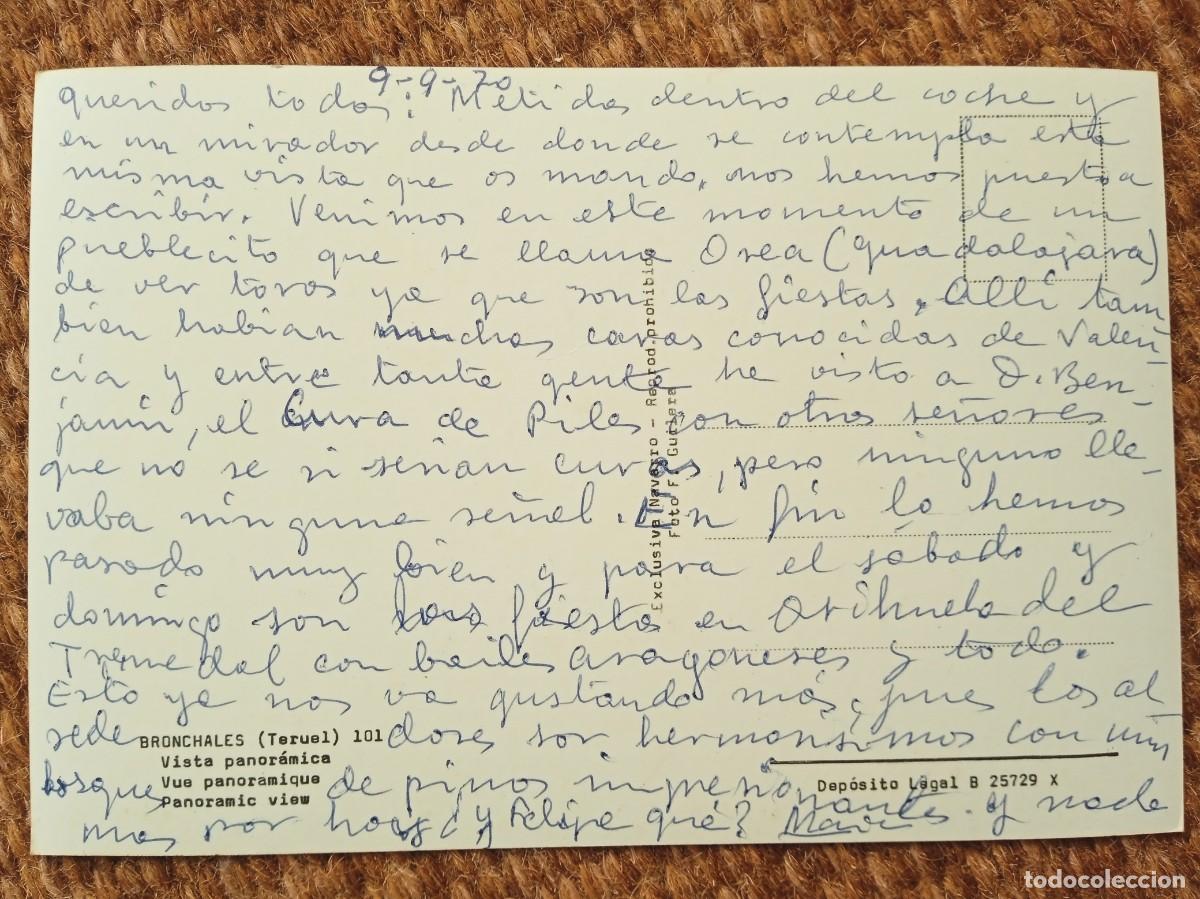 9-9-70
queridos todos: Metidos dentro del coche y
en un mirador desde donde se contempla esta
misma vista que os mando, nos hemos puesto a
escribir. Venimos en este momento de un
pueblecito que se llama Orea (Guadalajara)
de ver toros ya que son las fiestas. Allí tam
bien habian muchas caras conocidas de Valen-
cia y entre tanta gente he visto a D. Ben-
jamin, el Cura de Piles con otros señores
que no se si serian curas, pero ninguno lle-
vaba ninguna señal. En fin lo hemos
pasado muy bien y para el sábado y
domingo son las fiesta en Orihuela del
Tremedal con bailes aragoneses y todo.
Esto ya nos va gustando más, pues los al
rededores son hermosísimos con un
bosque de pinos impresionante. y nada
mas por hoy ¿y Felipe qué?
Exclusiva Navarro - Reprod. prohibida
Foto F. Guillera
BRONCHALES (Teruel) 101
Vista panorámica
Vue panoramique
Panoramic view
Depósito Legal B 25729 X
todocoleccion